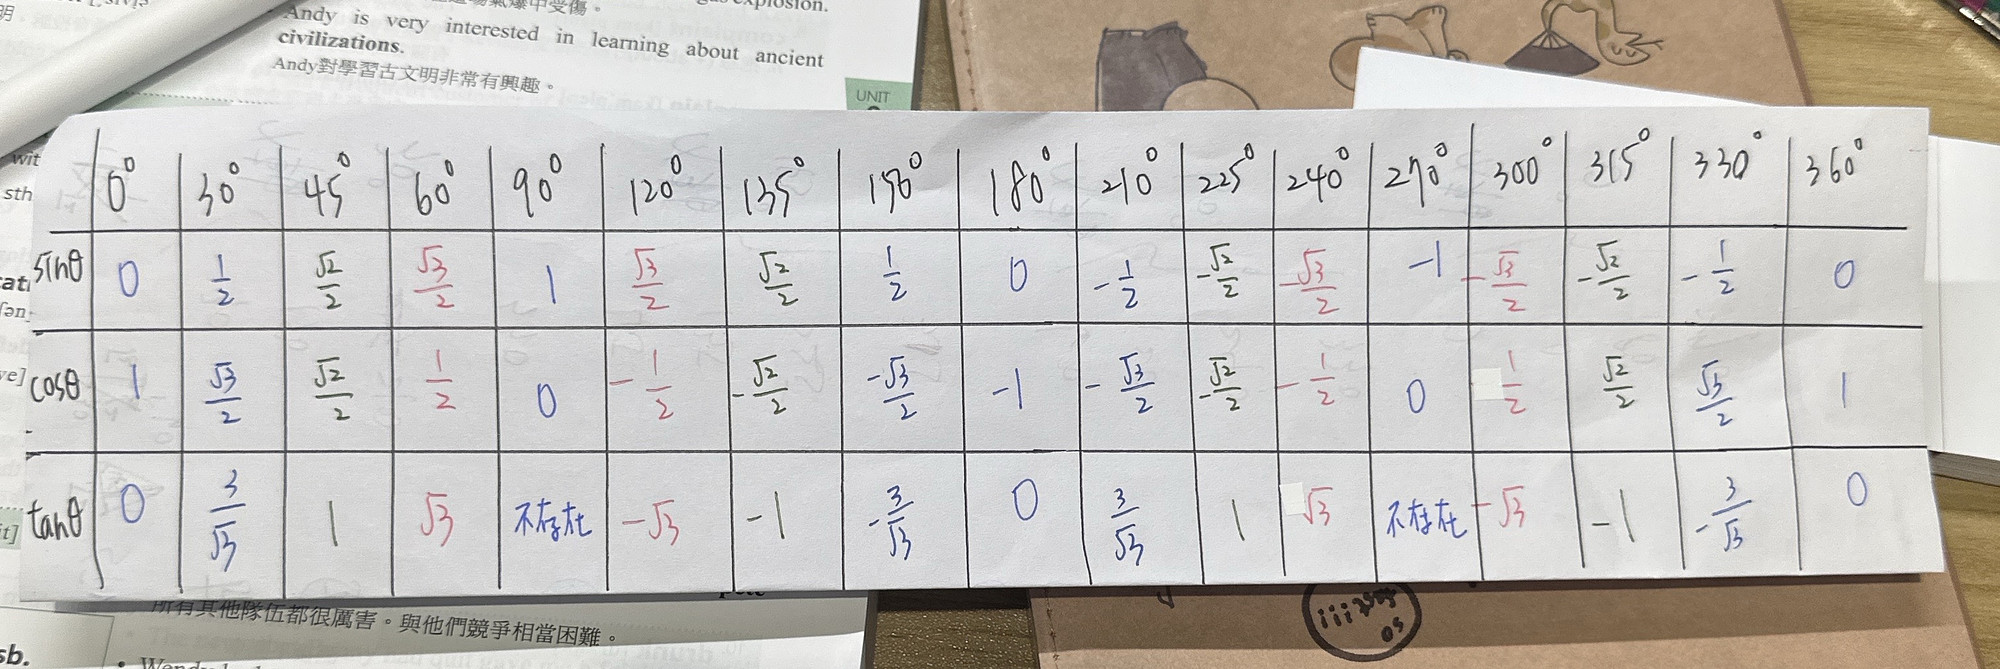 gas explosion.
爆中受傷。
Andy is very interested in learning about ancient
civilizations.
Andy對學習古文明非常有興趣。
UNIT
wit
sth
0° 30° 45° 60° 90° 120° 135° 150° 180° 210° 225° 240° 270° 300° 315° 330° 360°
sinθ 0 1/2 √2/2 √3/2 1 √3/2 √2/2 1/2 0 -1/2 -√2/2 -√3/2 -1 -√3/2 -√2/2 -1/2 0
cosθ 1 √3/2 √2/2 1/2 0 -1/2 -√2/2 -√3/2 -1 -√3/2 -√2/2 -1/2 0 1/2 √2/2 √3/2 1
tanθ 0 3/√3 1 √3 不存在 -√3 -1 -3/√3 0 3/√3 1 √3 不存在 -√3 -1 -3/√3 0
所有其他隊伍都很厲害。與他們競爭相當困難。
sb.